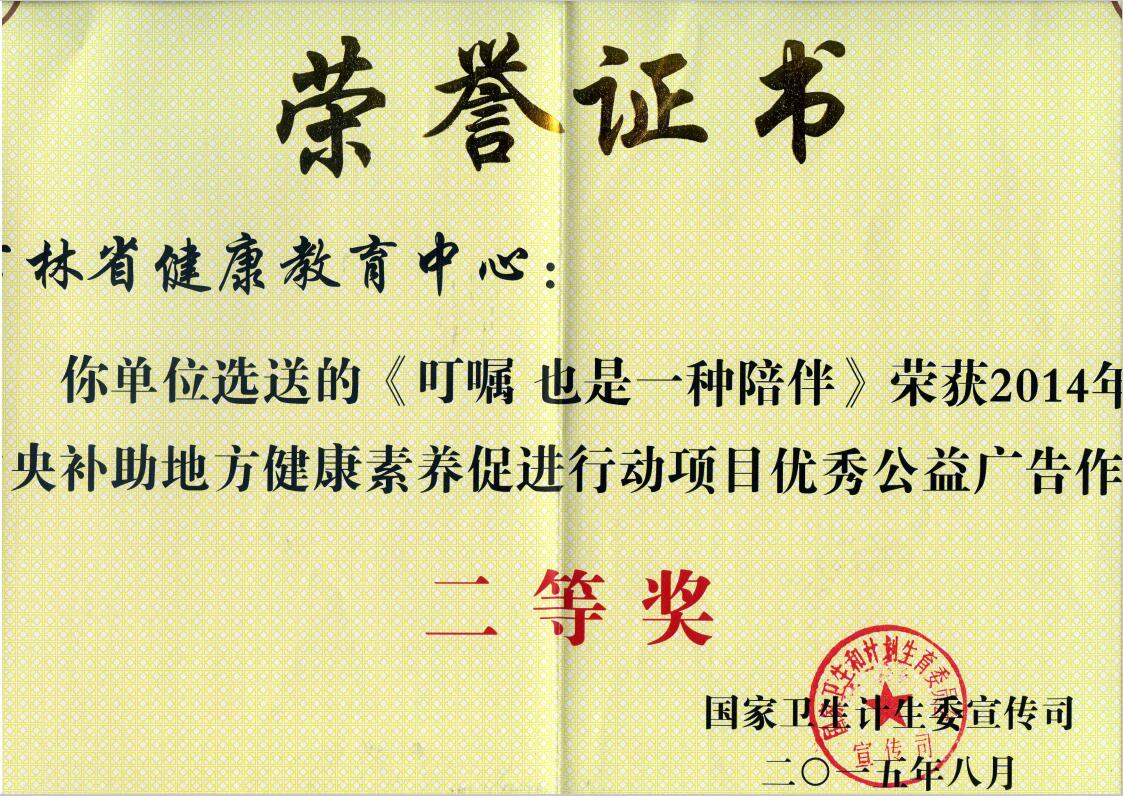 荣誉证书
林省健康教育中心：
你单位选送的《叮嘱 也是一种陪伴》荣获2014年
央补助地方健康素养促进行动项目优秀公益广告作
二等奖
国家卫生和计划生育委员会
宣传司
国家卫生计生委宣传司
二〇一五年八月